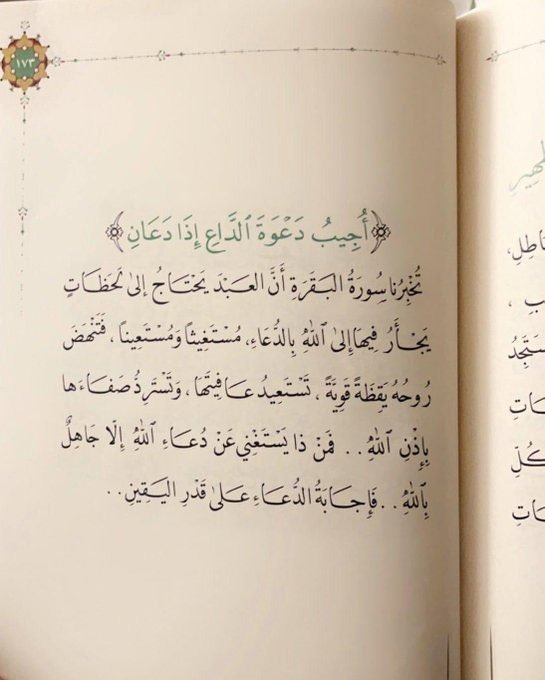 ١٧٣
﴿أُجِيبُ دَعْوَةَ ٱلدَّاعِ إِذَا دَعَانِ﴾
تُخْبِرُنا سُورَةُ البَقَرَةِ أَنَّ العَبْدَ يَحْتَاجُ إلى لَحَظَاتٍ
يَجْأَرُ فِيهَا إِلىٰ اللهِ بِالدُّعَاءِ، مُسْتَغِيثاً وَمُسْتَعِيناً، فَتَنْهَضَ
رُوحُهُ يَقِظَةً قَوِيَّةً، تَسْتَعِيدُ عَافِيتَهَا، وَتَسْتَرِدُّ صَفَاءَهَا
بِإِذْنِ اللهِ.. فَمَنْ ذا يَسْتَغْنِي عَنْ دُعَاءِ اللهِ إِلّا جَاهِلٌ
بِاللهِ.. فَإِجَابَةُ الدُّعَاءِ عَلىٰ قَدْرِ اليَقِينِ..